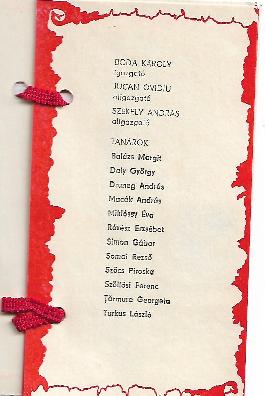 BODA KÁROLY
igazgató
JUCAN OVIDIU
aligazgató
SZÉKELY ANDRÁS
aligazgató
TANÁROK
Balázs Margit
Daly György
András
Macák András
Miklóssy Éva
Erzsébet
Simon Gábor
Somai Rezső
Szőcs Piroska
Szöllősi Ferenc
Tărmure Georgeta
Turkus László